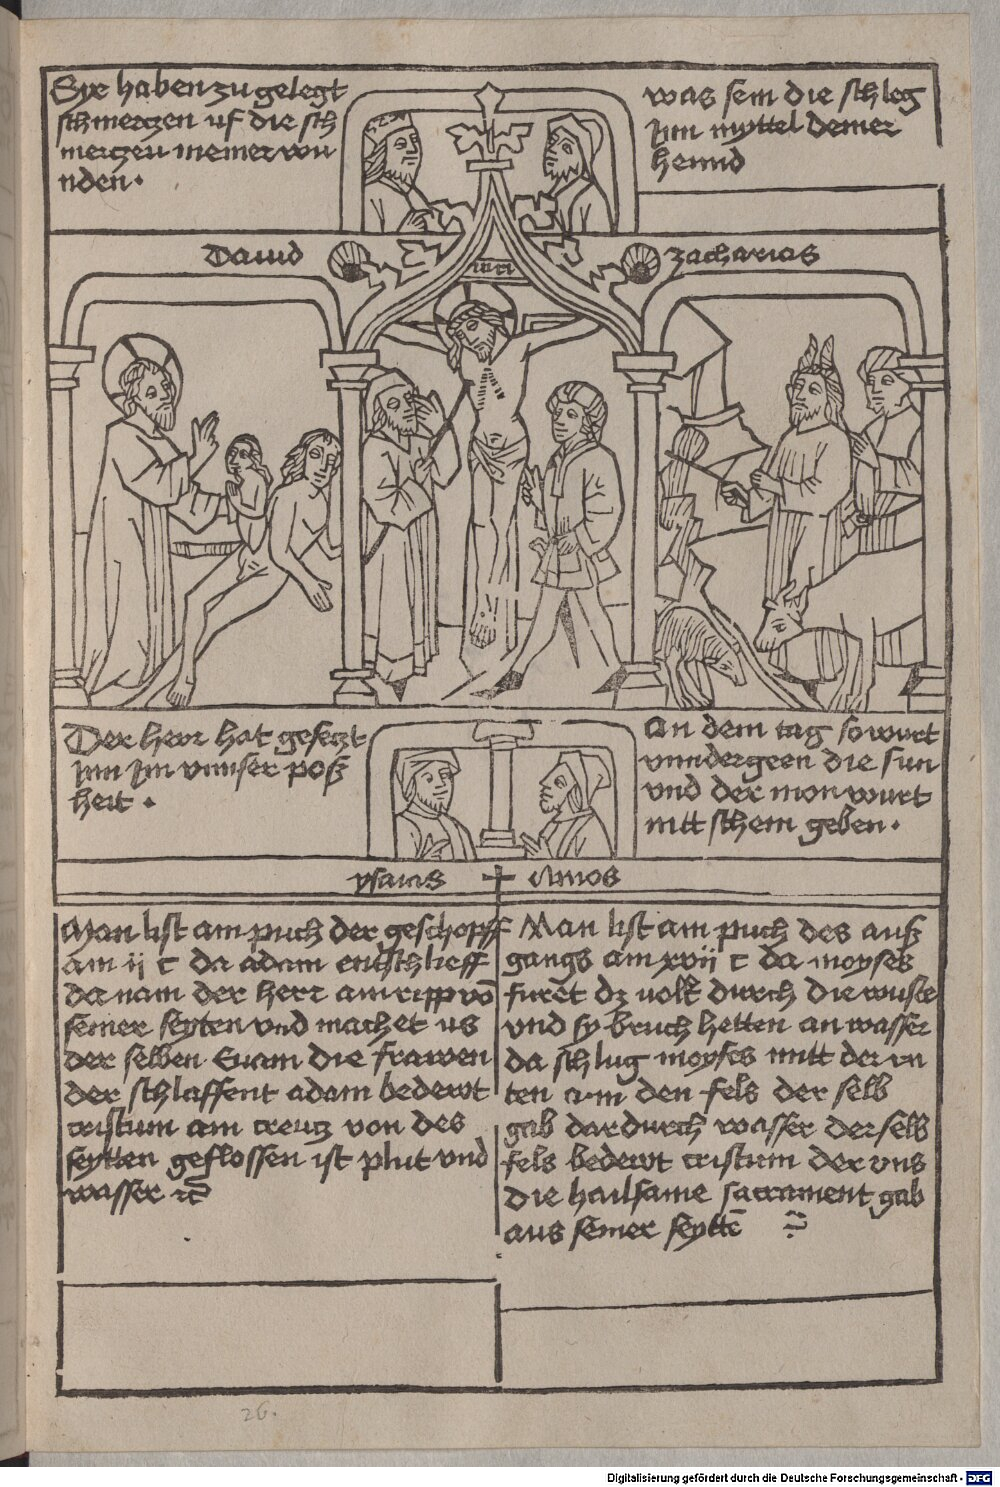 Sye haben zu gelegt
schmerczen uf die sch
merczen meiner wu
nden.
was sein die schleg
jnn myttel deiner
hennd
Dauid
zacharias
Der herr hat gesetzt
jnn jm vnnser posz
heit.
An dem tag so wurt
vnndergeen die sun
vnd der mon wurt
nitt schein geben.
ysaias
Amos
Man list am puch der geschopff
am ij c da adam entschlieff
da nam der herr am ripp vō
seiner seyten vnd machet us
der selben Euam die frawen
der schlaffent adam bedewt
cristum am creutz von des
seytten geflossen ist plut vnd
wasser ꝛc̄
Man list am puch des ausz
gangs am xvij c da moyses
furēt dz uolk durch die wuste
vnd sy bruch hetten an wasser
da schlug moyses mitt der ru
ten am den fels der selb
gab dardurch wasser der selb
fels bedewt cristum der vns
die hailsame sacrament gab
aus seiner seyttē
26.
Digitalisierung gefördert durch die Deutsche Forschungsgemeinschaft - DFG